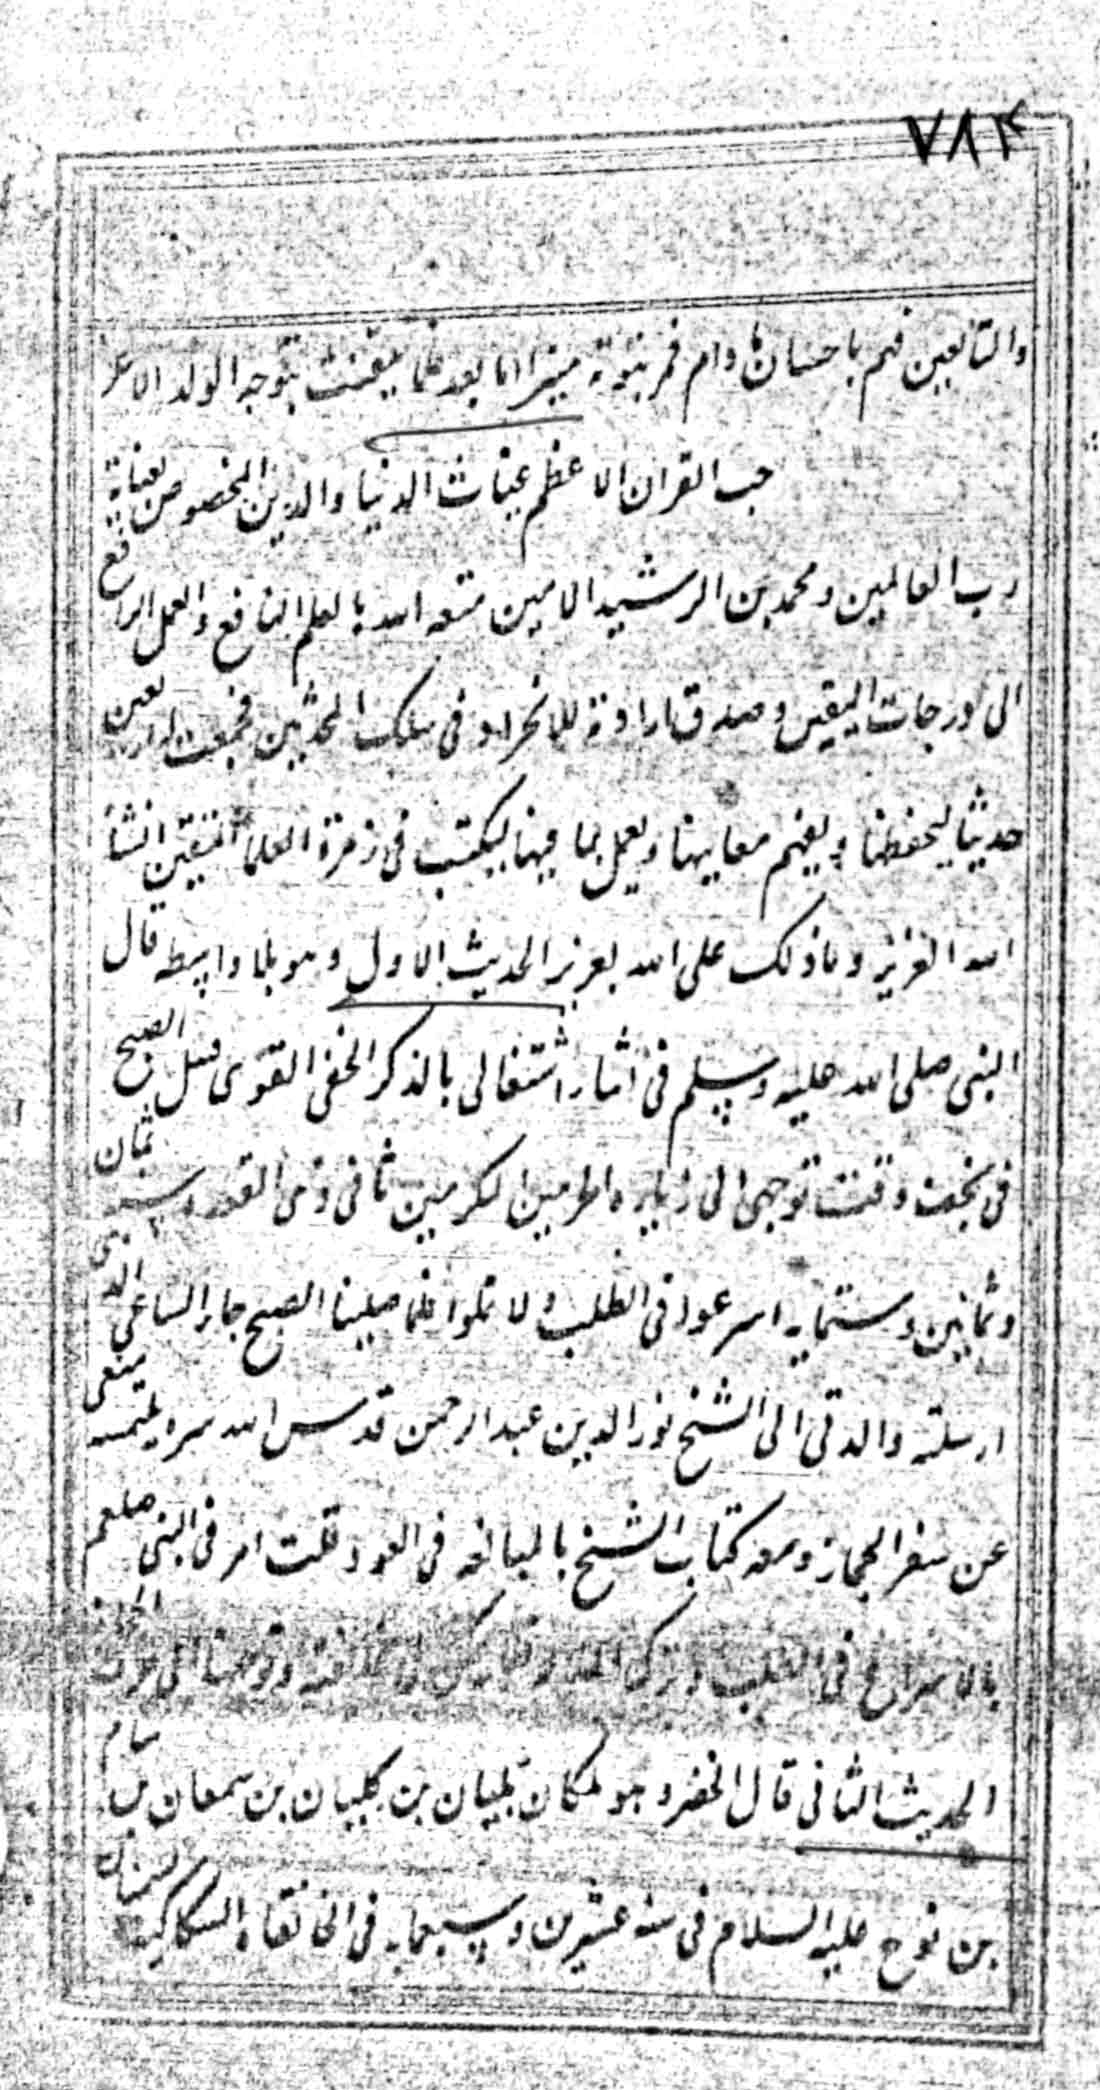 ٧٨٤
والتابعين لهم باحسان ما دام قمر نبوته منيرا اما بعد فلما تيقنت بتوجه الولد الاعز
حب القران الاعظم غياث الدنيا والدين المخصوص بعناية
رب العالمين ومحمد بن الرشيد الامين متعه الله بالعلم النافع والعمل الرافع
الى درجات اليقين وصدق ارادته للانخراط فى سلك المحدثين فجمعت له اربعين
حديثا ليحفظها ويفهم معانيها ويعمل بما فيها ليكتب فى زمرة العلماء المتقين انشا
الله العزيز وما ذلك على الله بعزيز الحديث الاول وهو بلا واسطه قال
النبى صلى الله عليه وسلم فى اثنا اشتغالى بالذكر الخفى القوى قبل الصبح
فى وقت توجهى الى زيارة الحرمين المكرمين ثانى ذى القعده سنه ثمان
وثمانين وستمايه اسرعوا فى الطلب ولا تملوا فلما صلينا الصبح جا الساعى الذى
ارسلته والدتى الى الشيخ نور الدين عبد الرحمن قدس الله سره يلتمسه منعى
عن سفر الحجاز ومعه كتاب الشيخ بالمبالغه فى العود قلت امر فى النبى صلعم
بالاسراع فى الطلب وتوجهنا الى
الحديث الثانى قال الخضر وهو ملكان بن بليان بن كليان بن سمعان بن سام
بن نوح عليه السلام فى سنه عشرين وسبعمايه فى الخانقاه السكاكيه بسمنان